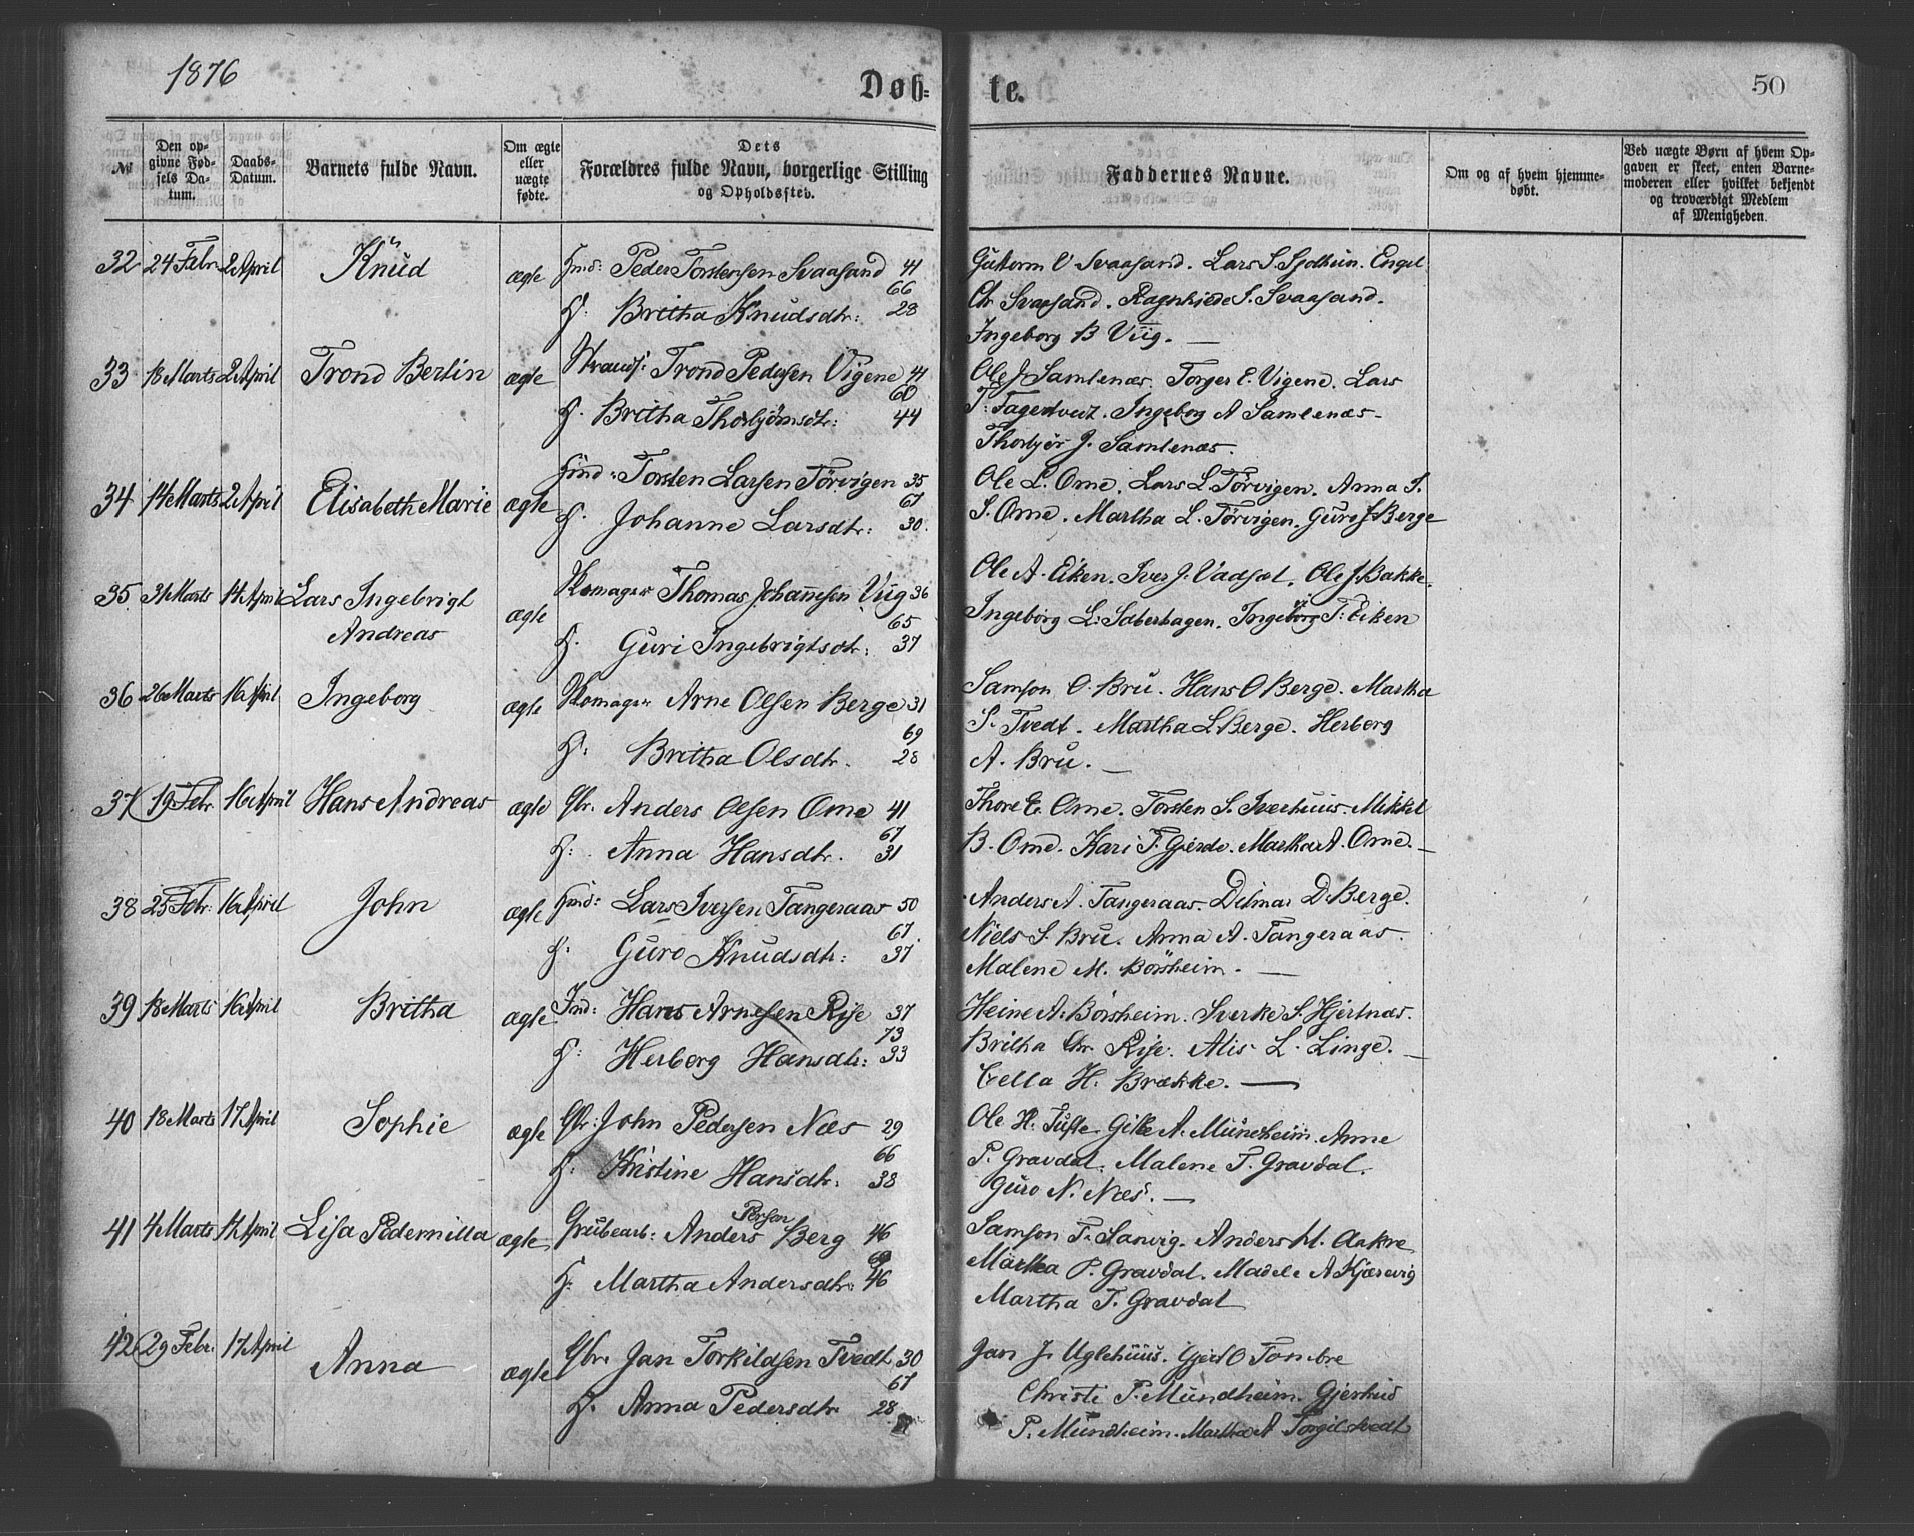 1876
Døb= te.
50
№
Den op-
givne Fød-
sels Da-
tum.
Daabs-
Datum.
Barnets fulde Navn.
Om ægte
eller
uægte
fødte.
Dets
Forældres fulde Navn, borgerlige Stilling
og Opholdssted.
Faddernes Navne.
Om og af hvem hjemme-
døbt.
Ved uægte Børn af hvem Op-
gaven er skeet, enten Barne-
moderen eller hvilket bekjendt
og troværdigt Medlem
af Menigheden.
32 24 Febr. 2 April Knud ægte Peder Torstensen Svaasand 41
66
H: Britha Knudsdtr: 28
Guttorm Svaasand. Lars S. Engel
Chr Svaasand. Ragnhilde S. Svaasand.
Ingeborg B Viig. —
33 18 Marts 2 April Trond Bertin ægte Trond Pedersen Vigene 41
60
H. Britha Thorbjørnsdtr: 44
Ole J Samlenæs. Torger E. Vigene. Lars
T: Ingeborg A Samlenæs -
J. Samlenæs.
34 14 Marts 2 April Elisabeth Marie ægte Torsten Larsen Tørvigen 35
67
H. Johanne Larsdtr: 30.
Ole L. Ome. Lars L. Tørvigen. Anna S.
S. Ome. Martha L. Tørvigen. Guro J Berge
35 31 Marts 14 April Lars Ingebrigt
Andreas
ægte Thomas Johannesen Viig 36
65
H. Guri Ingebrigtsdtr: 37
Ole A. Eiken. Iver J. Vadsæl. Ole J. Bakke.
Ingeborg L: Ingeborg T: Eiken
36 26 Marts 16 April Ingeborg ægte Arne Olsen Berge 31
69
H: Britha Olsdtr. 28
Samson O. Bru. Hans O Berge. Martha
S. Tvedt. Martha L Berge. Herborg
A. Bru. —
37 19 Febr. 16 April Hans Andreas ægte Gbr. Anders Olsen Ome 41
67
H: Anna Hansdtr. 31
Thore E. Ome. Torsten S. Iverhuus. Mikkel
B. Ome. Kari T. Gjerde. Martha A. Ome. —
38 25 Febr: 16 April John ægte Lars Iversen Tangeraas 50
67
H: Guro Knudsdtr: 37
Anders A. Tangeraas. D. Berge.
Niels S. Bru. Anna A. Tangeraas.
Malene M. Børsheim. —
39 18 Marts 16 April Britha ægte Ind: Hans Arnesen Rise 37
73
H: Herborg Hansdtr: 33
Heine A. Børsheim. Sverke S. Hjertnæs.
Britha Chr. Rise. Alis L. Linge. —
Cella H. Brække. —
40 18 Marts 17 April Sophie ægte Gbr: John Pedersen Næs 29
66
H. Kristine Hansdtr: 38
Ole H. Tufte. A. Mundheim. Anne
P. Gravdal. Malene T. Gravdal.
Guro N. Næs. —
41 4 Marts 14 April Lisa Pedernilla ægte Grubearb: Anders Person Berg 46
H: Martha Andersdtr: 46
Samson T. Sanvig. Anders M. Aakre
Martha P. Gravdal. Madele A Kjærevig
Martha T. Gravdal
42 29 Febr. 17 April Anna ægte Gbr. Jan Torkildsen Tvedt 30
67
H. Anna Pedersdtr. 28
Jan J. Uglehuus. O Tombre
Christi P. Mundheim. Gjertrud
P. Mundheim. Martha A Tvedt